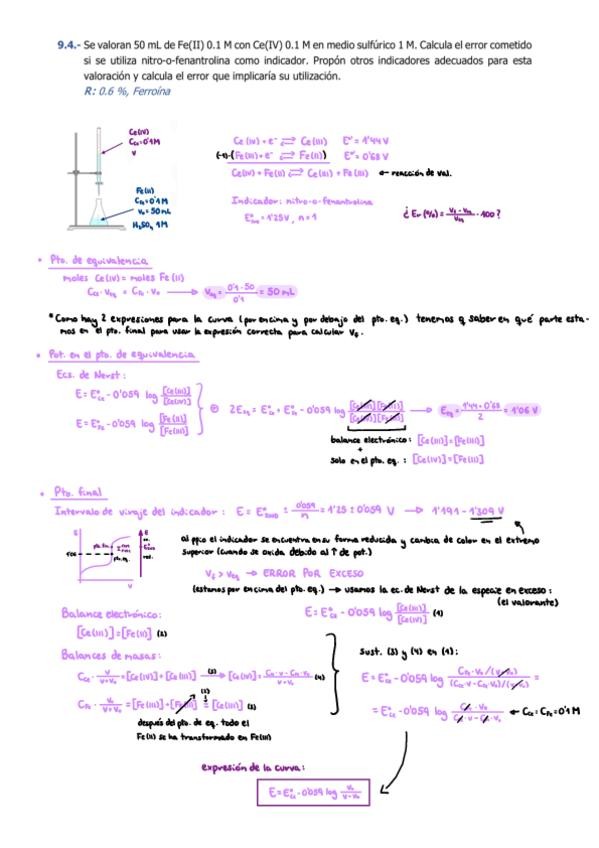 9.4.- Se valoran 50 mL de Fe(II) 0.1 M con Ce(IV) 0.1 M en medio sulfúrico 1 M. Calcula el error cometido
si se utiliza nitro-o-fenantrolina como indicador. Propón otros indicadores adecuados para esta
valoración y calcula el error que implicaría su utilización.
R: 0.6 %, Ferroína
Ce(IV)
C_Ce=0'1M
V
Fe(II)
C_Fe=0'1M
V₀=50mL
H₂SO₄ 1M
Ce(IV)+e⁻ ⇌ Ce(III) E°'=1'44V
(-1)·(Fe(III)+e⁻ ⇌ Fe(II)) E°'=0'68V
Ce(IV)+Fe(II) ⇌ Ce(III)+Fe(III) ← reacción de val.
Indicador: nitro-o-fenantrolina
E°IND=1'25V, n=1
¿Er(%)= (Vf-Veq)/Veq · 100?
• Pto. de equivalencia
moles Ce(IV)=moles Fe(II)
C_Ce·Veq = C_Fe·V₀ → Veq = 0'1·50/0'1 = 50mL
*Como hay 2 expresiones para la curva (por encima y por debajo del pto. eq.) tenemos q saber en qué parte esta-
mos en el pto. final para usar la expresión correcta para calcular Vf.
• Pot. en el pto. de equivalencia
Ecs. de Nerst:
E=E°Ce-0'059 log [Ce(III)]/[Ce(IV)]
E=E°Fe-0'059 log [Fe(II)]/[Fe(III)]
⊕ 2Eeq=E°Ce+E°Fe-0'059 log [Ce(III)][Fe(II)]/[Ce(IV)][Fe(III)] → Eeq=(1'44+0'68)/2=1'06V
balance electrónico: [Ce(III)]=[Fe(III)]
+
solo en el pto. eq.: [Ce(IV)]=[Fe(II)]
• Pto. final
Intervalo de viraje del indicador: E=E°IND ± 0'059/n = 1'25±0'059V → 1'191-1'309V
E
1'06
pto. fin.
pto. eq.
V
al ppio el indicador se encuentra en su forma reducida y cambia de color en el extremo
superior (cuando se oxida debido al ↑ de pot.)
Vf>Veq → ERROR POR EXCESO
(estamos por encima del pto. eq.) → usamos la ec. de Nerst de la especie en exceso:
(el valorante)
Balance electrónico:
[Ce(III)]=[Fe(III)] (2)
E=E°Ce-0'059 log [Ce(III)]/[Ce(IV)] (1)
Balances de masas:
C_Ce·V/(V+V₀)=[Ce(IV)]+[Ce(III)] (3)→ [Ce(IV)]=(C_Ce·V-C_Fe·V₀)/(V+V₀) (4)
C_Fe·V₀/(V+V₀)=[Fe(III)]+[Fe(II)] (2)= [Ce(III)] (3)
después del pto. de eq. todo el
Fe(II) se ha transformado en Fe(III)
Sust. (3) y (4) en (1):
E=E°Ce-0'059 log (C_Fe·V₀/(V+V₀))/((C_Ce·V-C_Fe·V₀)/(V+V₀)) =
=E°Ce-0'059 log (C_Fe·V₀)/(C_Ce·V-C_Fe·V₀) ← C_Ce=C_Fe=0'1M
expresión de la curva:
E=E°Ce-0'059 log V₀/(V-V₀)